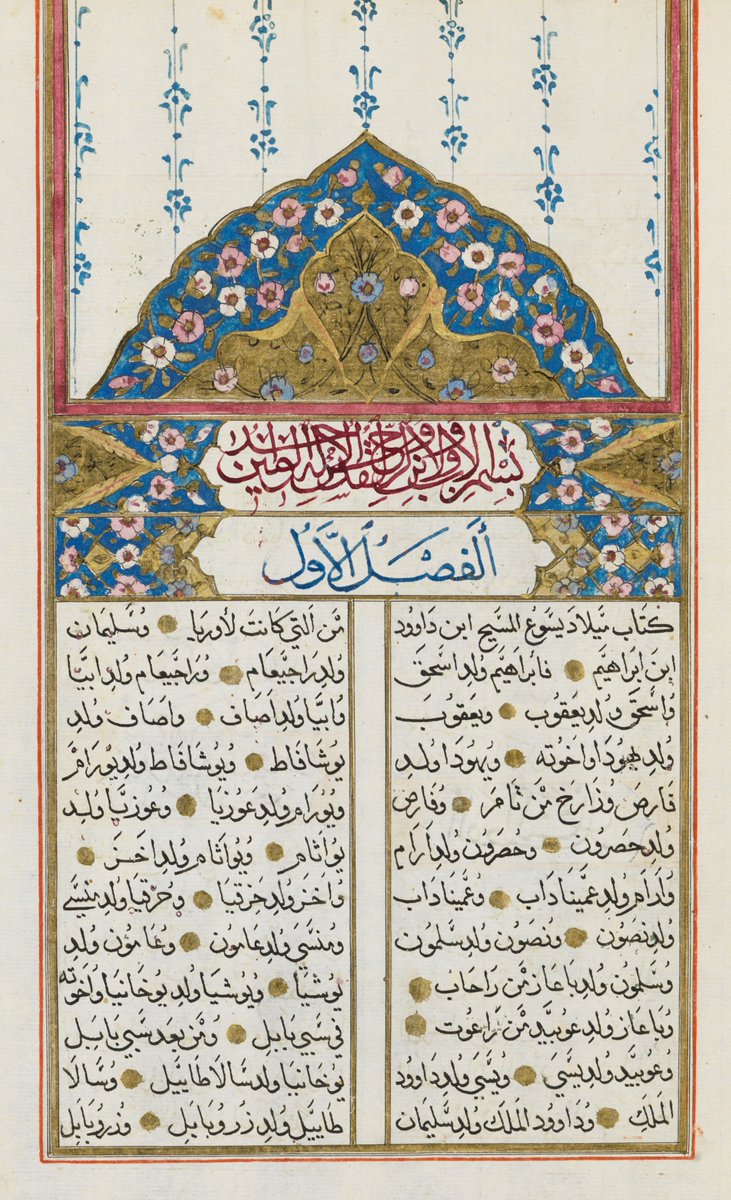 بسم الاب والابن والروح القدس الاله الواحد امين
اَلفَصْلُ الاَّوَل
كتاب ميلاد يسوع المسيح ابن داوود
ابن ابراهيم فابراهيم ولد اسحق
واسحق ولد يعقوب ويعقوب
ولد يهودا واخوته ويهودا ولد
فارص وزارخ من تامر وفارص
ولد حصرون وحصرون ولد ارام
وارام ولد عميناداب وعميناداب
ولد نصون ونصون ولد سلمون
وسلمون ولد باعاز من راحاب
وباعاز ولد عوبيد من راعوت
وعوبيد ولد يسي ويسي ولد داوود
الملك وداوود الملك ولد سليمان
من التي كانت لأوريا وسليمان
ولد راجيعام وراجيعام ولد ابيا
وابيا ولد اصاف واصاف ولد
يوشافاط ويوشافاط ولد يورام
ويورام ولد عوزيا وعوزيا ولد
يواثام ويواثام ولد اخز
واخز ولد حزقيا وحزقيا ولد منسي
ومنسي ولد عامون وعامون ولد
يوشيا ويوشيا ولد يوخانيا واخوته
في سبي بابل ومن بعد سبي بابل
يوخانيا ولد سالاطاييل وسالا
طاييل ولد زروبابل وزروبابل